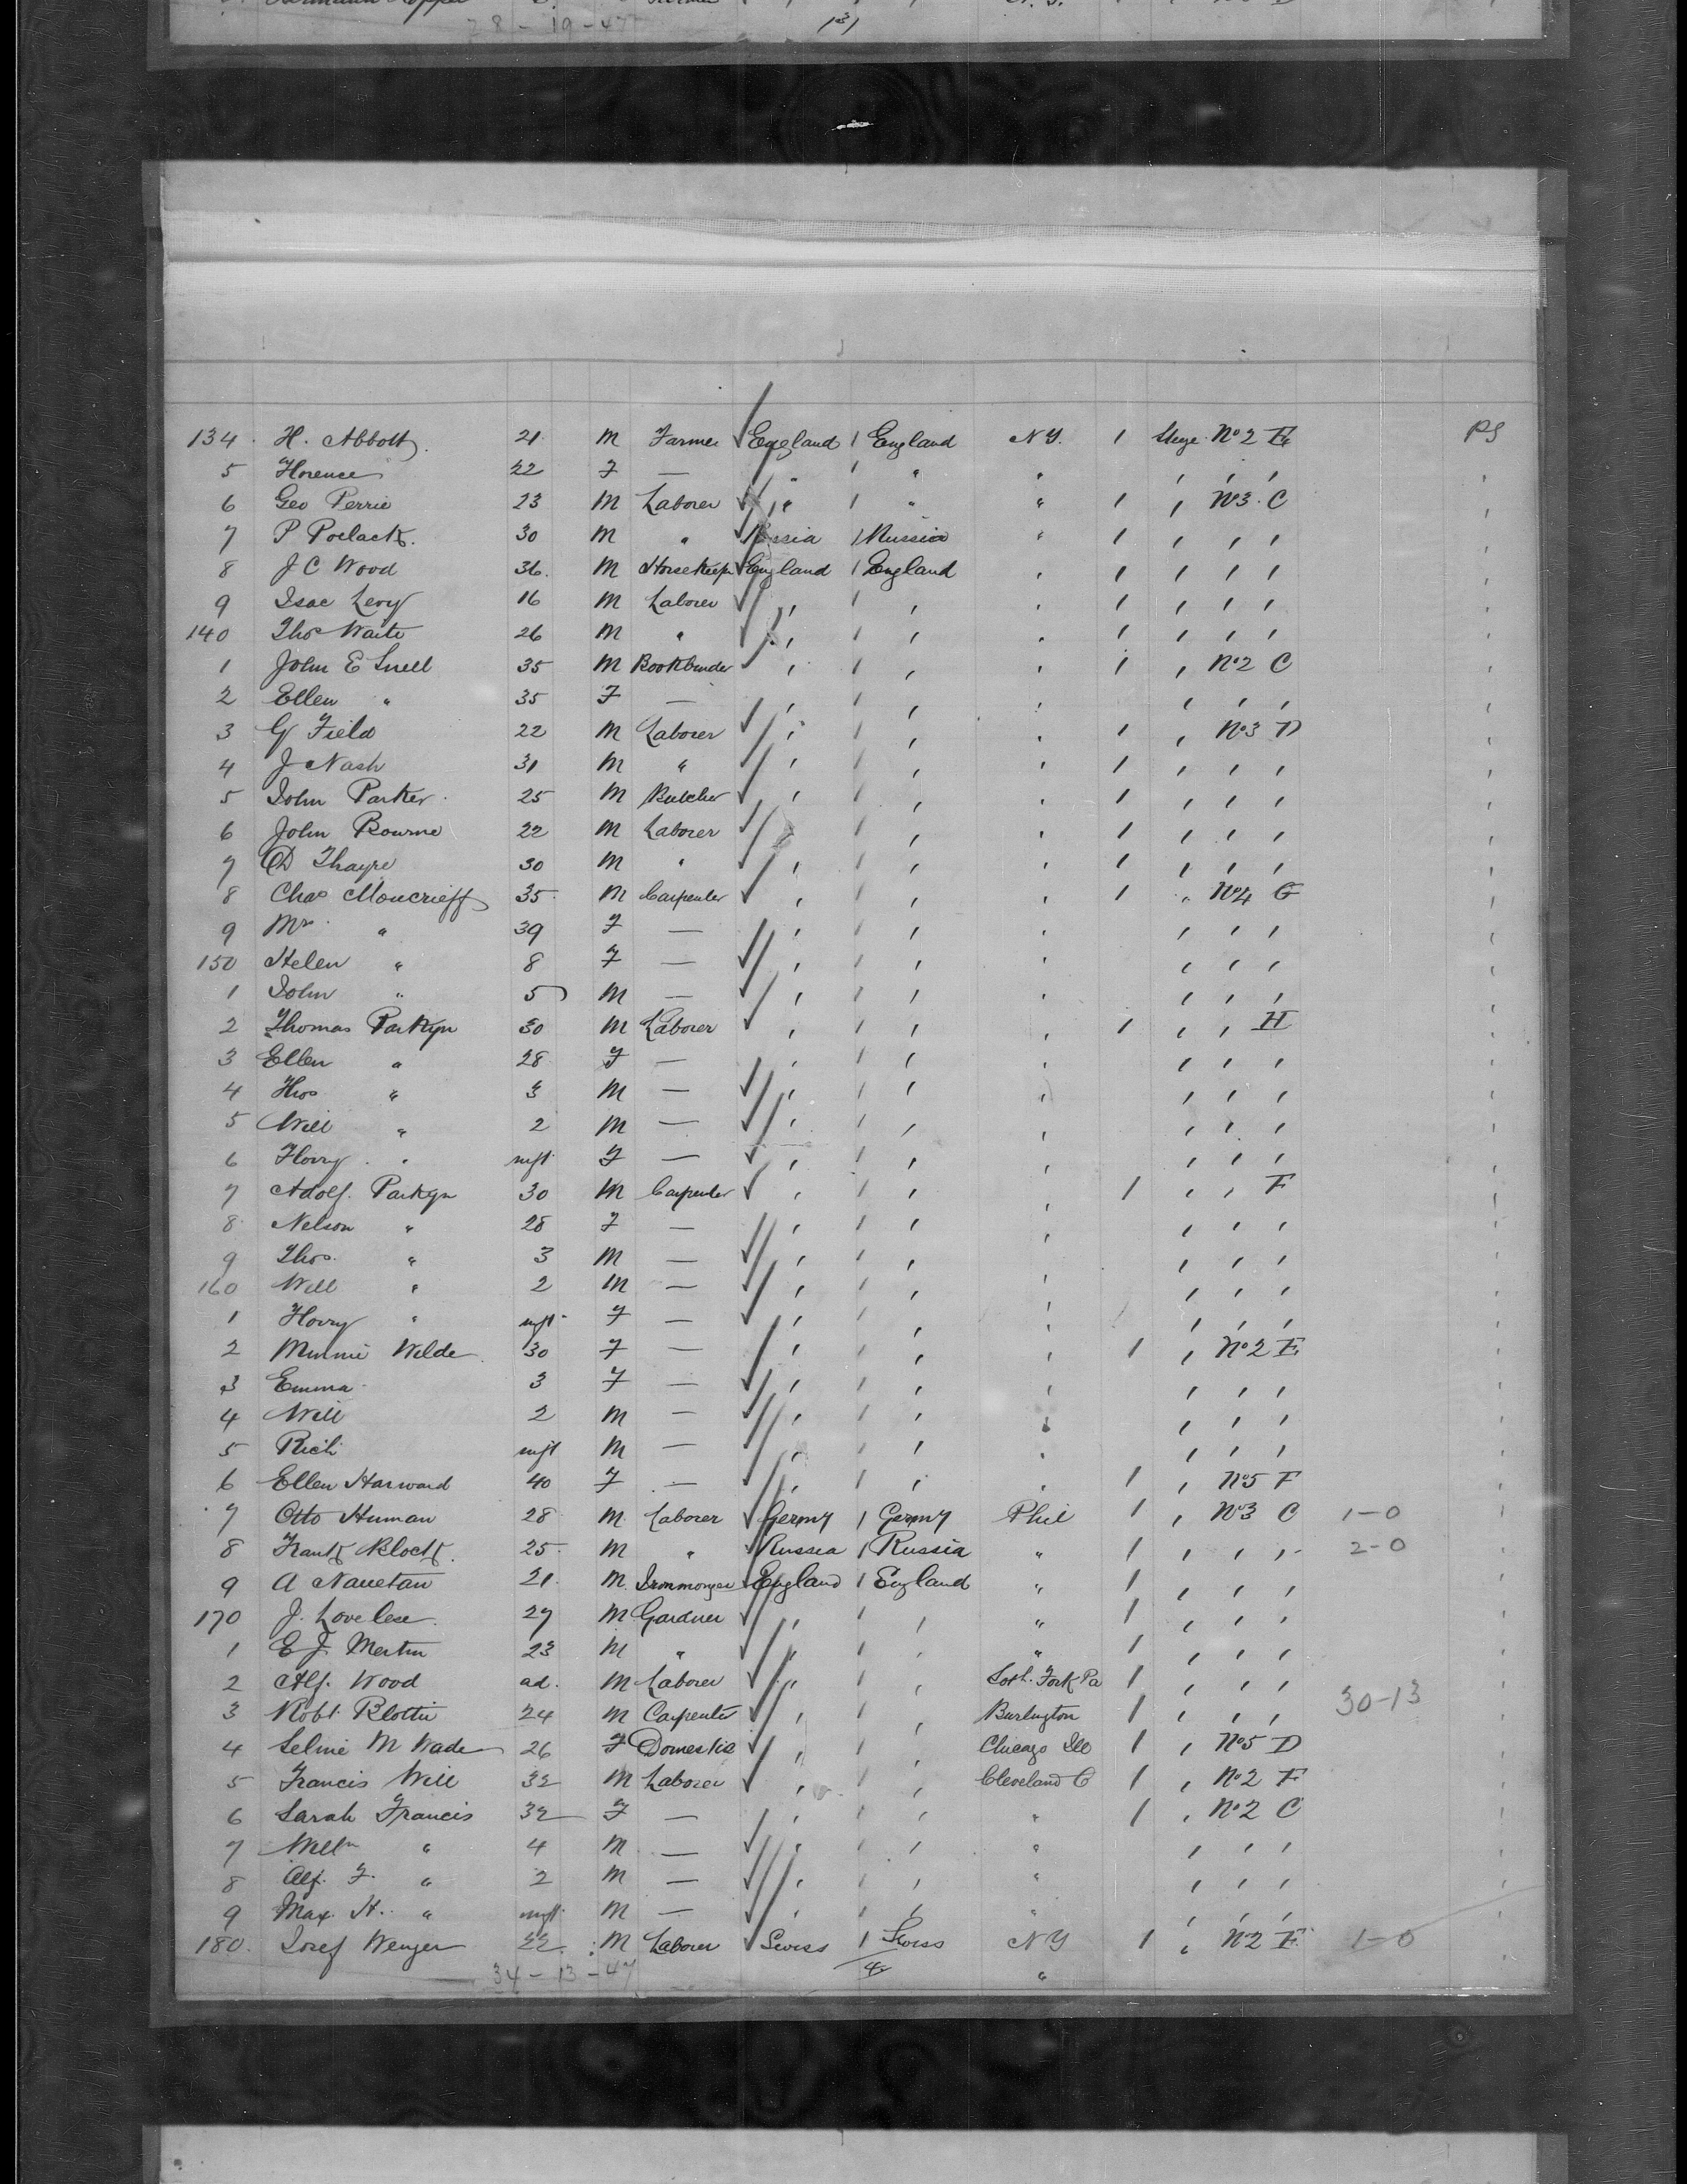 28-19-47
134 H. Abbott 21 M Farmer England 1 England N.Y. 1 Stege No 2 E PS
5 Florence 22 F — " 1 " " ' ' ' '
6 Geo Perrie 23 M Laborer " 1 " " 1 ' No 3 C '
7 P Poelack 30 M " Russia 1 Russia " 1 ' ' ' '
8 J C Wood 36 M Horsekeepr England 1 England ' 1 ' ' ' '
9 Isac Levy 16 M Laborer ' 1 ' ' 1 ' ' ' '
140 Thos Waite 26 M " ' 1 ' ' 1 ' ' ' '
1 John E Snell 35 M Bookbinder ' 1 ' ' 1 ' No 2 C '
2 Ellen " 35 F — ' 1 ' ' ' ' ' '
3 G Field 22 M Laborer ' 1 ' ' 1 ' No 3 D '
4 J Nash 31 M " ' 1 ' ' 1 ' ' ' '
5 John Parker 25 M Butcher ' 1 ' ' 1 ' ' ' '
6 John Bourne 22 M Laborer 1 ' ' 1 ' ' ' '
7 D Thayre 30 M " ' 1 ' ' 1 ' ' ' '
8 Chas Moncrieff 35 M Carpenter ' 1 ' ' 1 " No 4 G '
9 Mrs " 39 F — ' 1 ' ' ' ' ' '
150 Helen " 8 F — ' 1 ' ' ' ' ' '
1 John " 5 M — ' 1 ' ' ' ' ' '
2 Thomas Parkyn 30 M Laborer ' 1 ' ' 1 ' ' H '
3 Ellen " 28 F — ' 1 ' ' ' ' ' '
4 Thos " 3 M — ' 1 ' ' ' ' ' '
5 Will " 2 M — ' 1 ' ' ' ' ' '
6 Florry " inft F — ' 1 ' ' ' ' ' '
7 Adolf. Parkyn 30 M Carpenter ' 1 ' ' 1 ' ' F '
8 Nelson " 28 F — ' 1 ' ' ' ' ' '
9 Thos. " 3 M — ' 1 ' ' ' ' ' '
160 Will " 2 M — ' 1 ' ' ' ' ' '
1 Florry " inft F — ' 1 ' ' ' ' ' '
2 Minnie Welde 30 F — ' 1 ' ' 1 ' No 2 E '
3 Emma 3 F — ' 1 ' ' ' ' ' '
4 Will 2 M — ' 1 ' ' ' ' ' '
5 Rich inft M — ' 1 ' ' ' ' ' '
6 Ellen Harward 40 F — ' 1 ' ' 1 ' No 5 F '
7 Otto Human 28 M Laborer Germy 1 Germy Phil 1 ' No 3 C 1-0 '
8 Frank Block 25 M " Russia 1 Russia " 1 ' ' ' 2-0 '
9 A Nauetan 21 M Ironmonger England 1 England " 1 ' ' ' '
170 J. Lovelese 27 M Gardner ' 1 ' " 1 ' ' ' '
1 E J Mertin 23 M " " 1 ' " 1 ' ' ' '
2 Alf. Wood ad. M Laborer ' 1 ' Soth. Fork Pa 1 ' ' ' '
3 Robt Blottin 24 M Carpenter ' 1 ' Burlington 1 ' ' ' 30-13 '
4 Seline M Wade 26 F Domestic ' 1 ' Chicago Ill 1 ' No 5 D '
5 Francis Will 32 M Laborer ' 1 ' Cleveland O 1 ' No 2 F '
6 Sarah Francis 32 F — ' 1 ' " 1 ' No 2 C '
7 Willm " 4 M — ' 1 ' " ' ' ' '
8 Alf. F. " 2 M — ' 1 ' " ' ' ' '
9 Max. H. " inft M — ' 1 ' " ' ' ' '
180 Josef Wenger 22 M Laborer Swiss 1 Swiss NY 1 " No 2 E 1-0 '
34-13-47 4 "